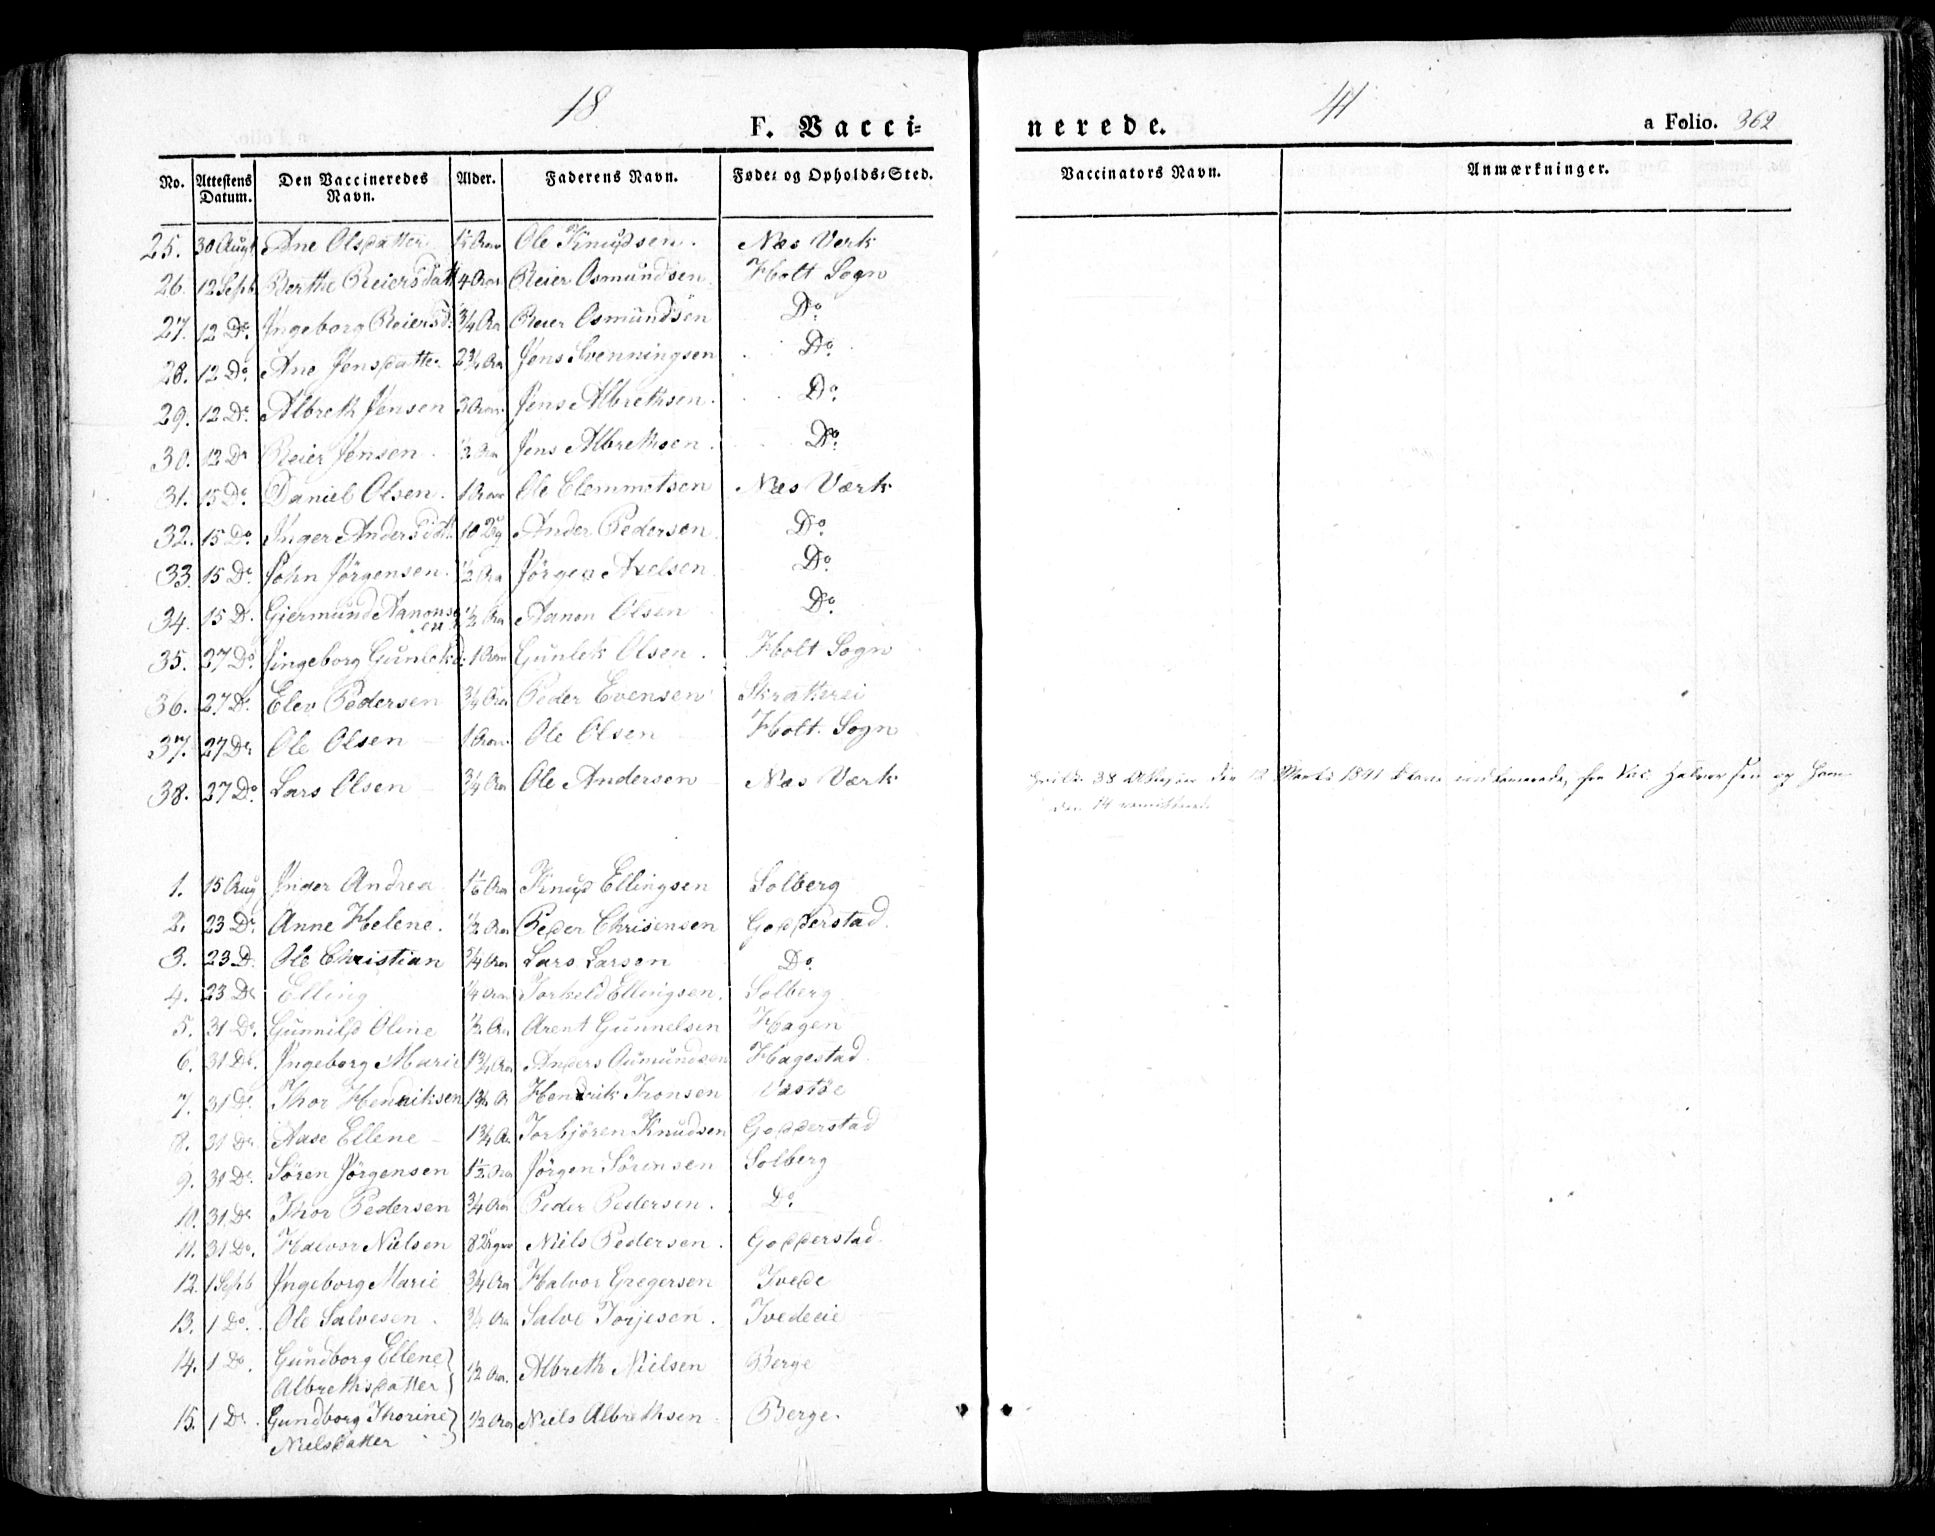 18
41
F. Vacci=
nerede.
a Folio. 362
No. Attestens Datum. Den Vaccineredes Navn. Alder. Faderens Navn. Føde= og Opholds=Sted. Vaccinators Navn. Anmærkninger.
25. 30 Augt Ane Olsdatter Ole Knudsen. Næs Verk
26. 12 Sepb Berthe Reiersdatt 4 Aar Reier Osmundsen Holt Sogn
27. 12 Do. Ingeborg Reiersd. 3/4 Aar Reier Osmundsen Do.
28. 12 Do. Ane Jensdatter 2 3/4 Aar Jens Svenningsen Do.
29. 12 Do. Albreth Jensen 3 Aar Jens Albrethsen. Do.
30. 12 Do Reier Jensen. 1/2 Aar Jens Albrethsen. Do.
31. 15 Do. Daniel Olsen. 1 Aar Ole Clemmetsen Næs Værk
32. 15 Do. Inger Andersdat. 10 Ander Pedersen Do.
33. 15 Do. John Jörgensen. 1/2 Aar Jörgen Axelsen Do.
34. 15 D. Giermund Aanons
en 1/2 Aar Aanon Olsen Do.
35. 27 Do. Jingeborg Gunlekd: 1 Aar Gunlek Olsen. Holt Sogn
36. 27 Do. Elev Pedersen 3/4 Aar Peder Evensen Skratterei
37. 27 Do Ole Olsen 1 Aar Ole Olsen Holt Sogn
38. 27 Do. Lars Olsen 3/4 Aar Ole Andersen Næs Værk 38 den 12 Marts 1841 fra Halvorsen og
den 14
1. 15 Aug Inger Andrea Knud Ellingsen Solberg
2. 23 Do. Anne Helene. 1/2 Aar Peder Chrisensen Godderstad.
3. 23 D. Ole Christian 3/4 Aar Lars Larsen Do.
4. 23 Do Elling 1/4 Aar Torkeld Ellingsen. Solberg
5. 31 Do. Gunnild Oline 1/2 Aar Arent Gunnelsen Hagen
6. 31 Do. Ingeborg Marie 1 3/4 Aar Anders Aumundsen Hagestad.
7. 31 Do. Thor Hendriksen 1 3/4 A Hendrik Tronsen Vastöe
8. 31 Do Aase Ellene 1 3/4 Aa Torbjören Knudsen Godderstad
9. 31 Do. Sören Jörgensen 1 1/2 Aar Jörgen Sörensen Solberg
10. 31 Do Thor Pedersen 3/4 Aar Peder Pedersen. Do.
11. 31 Do. Halvor Nielsen 8 Niels Pedersen. Godderstad.
12. 1 Sepb Ingeborg Marie 3/4 Aar Halvor Gregersen Tvede
13. 1 Do. Ole Salvesen. 3/4 Aar Salve Torjesen. Tvedeeie
14. 1 Do. Gundborg Ellene
Albrethsdatter 1/2 Aar. Albreth Nielsen Berge
15. 1 Do. Gundborg Thorine
Nielsdatter 1/2 Aar Niels Albrethsen Berge.